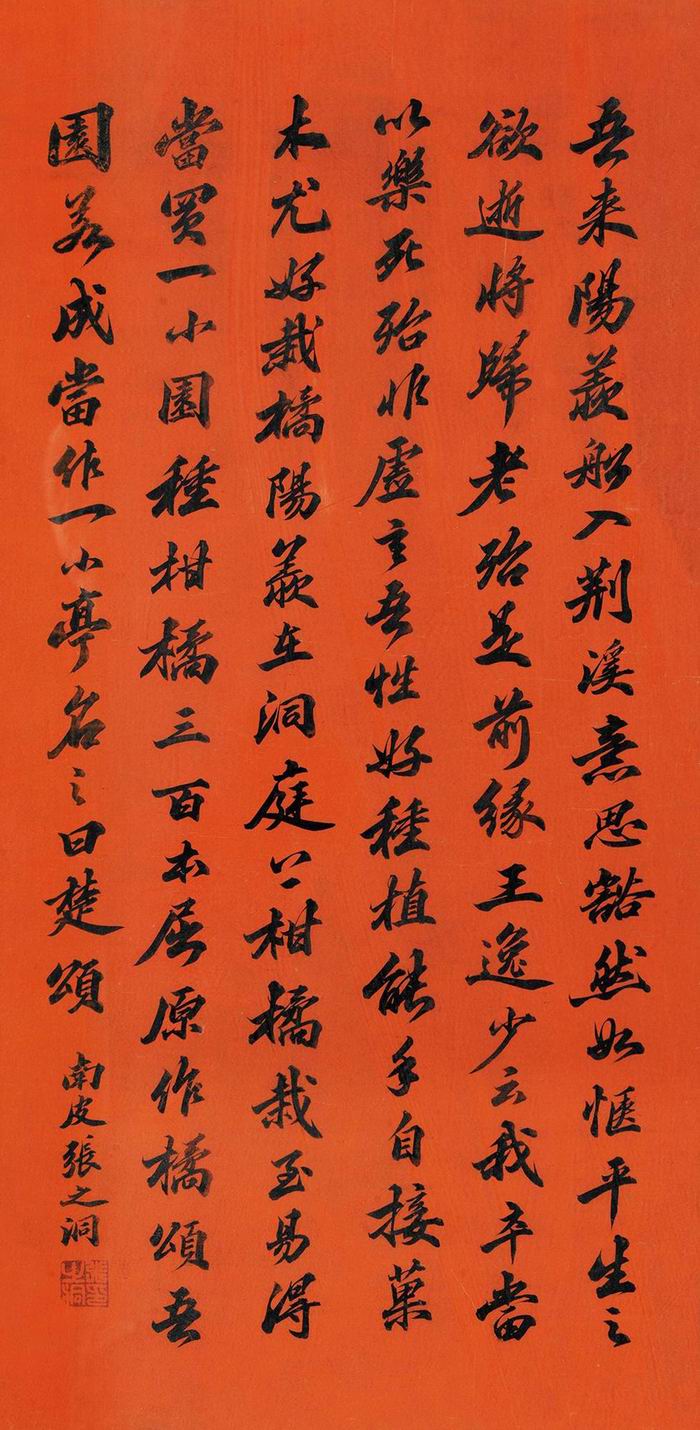 吾来陽羨船入荆溪意思豁然如惬平生之
欲逝將歸老殆是前緣王逸少云我卒當
以樂死殆非虛言吾性好種植能手自接菓
木尤好栽橘陽羨在洞庭上柑橘栽至易得
當買一小園種柑橘三百本屈原作橘頌吾
園若成當作一小亭名之曰楚頌
南皮張之洞
張之洞印